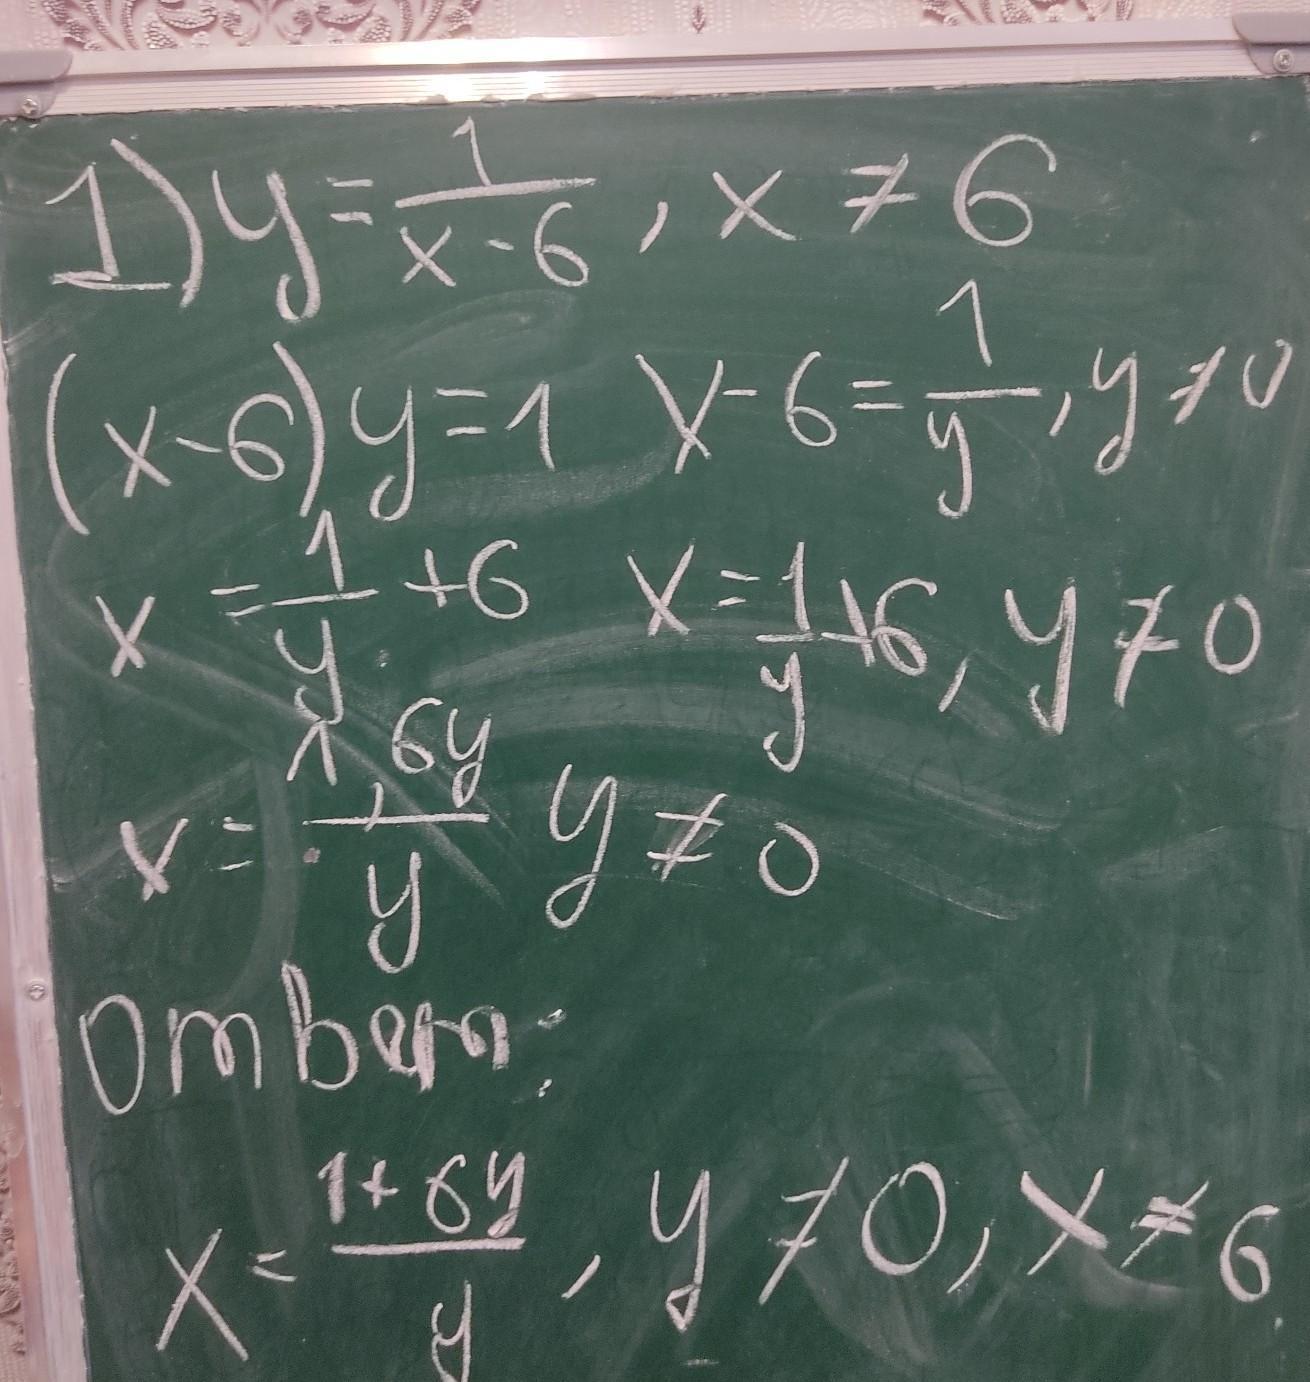 1) y = 1/(x - 6), x ≠ 6
(x - 6) y = 1 x - 6 = 1/y, y ≠ 0
x = 1/y + 6 x = 1/y + 6, y ≠ 0
x = (1, 6y)/y y ≠ 0
Ответ:
x = (1 + 6y)/y, y ≠ 0, x ≠ 6